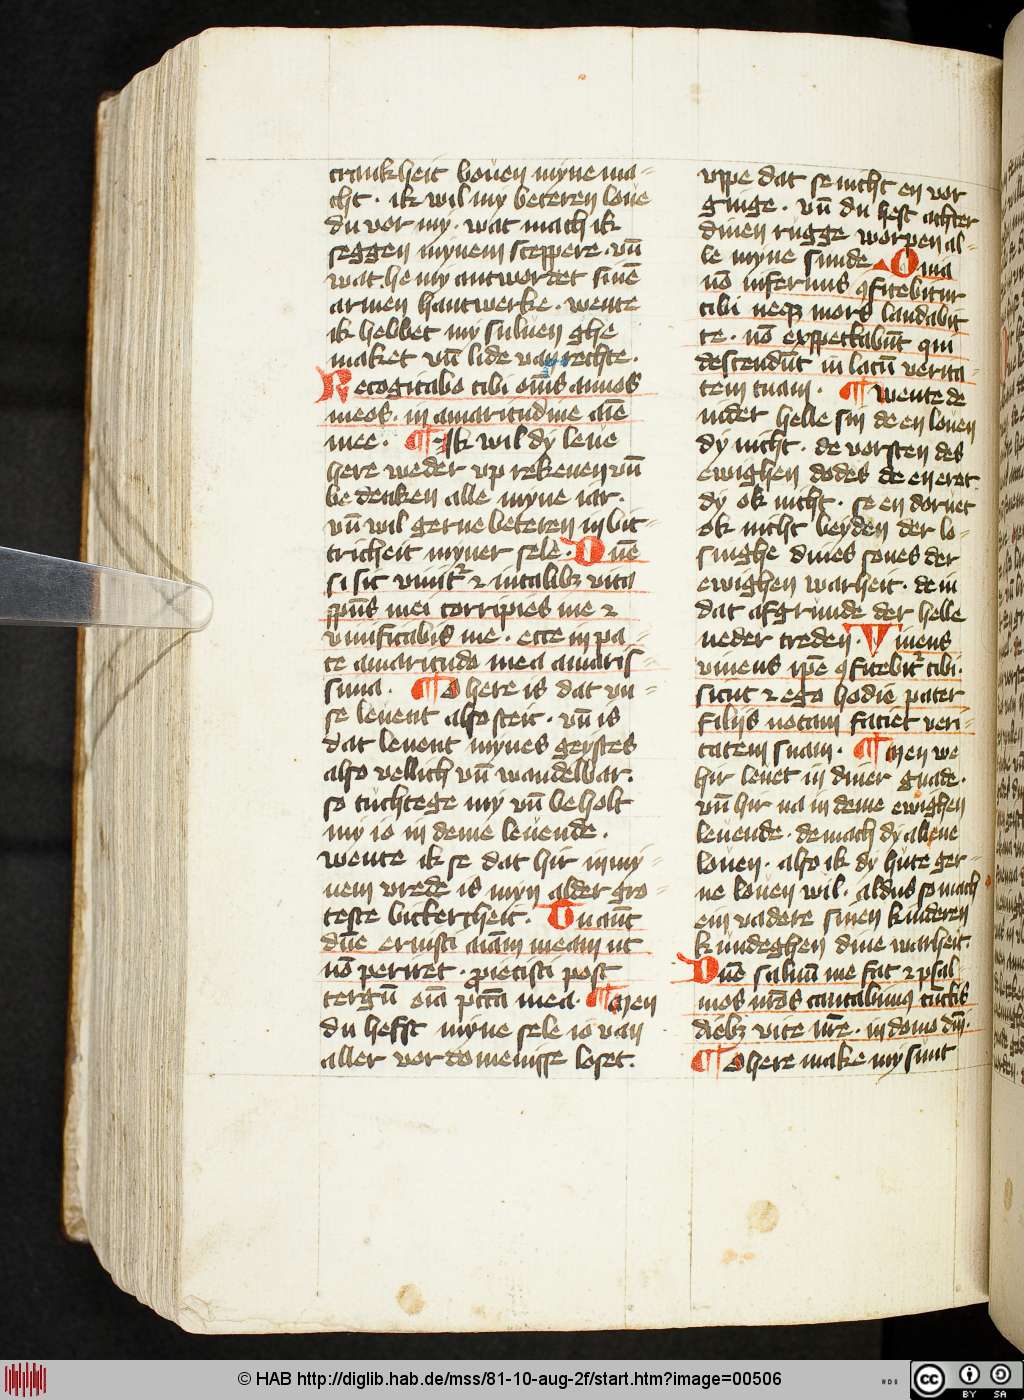 crankheit bouen myne ma-
cht · ik wil my beteren loue
du vor my · wat mach ik
seggen mynem sceppere · vn̄
wat he my antwordet sinē
armen hantwerke · wente
ik hebbet my suluen ghe
maket vn̄ lide van rechte ·
Recogitabo tibi om̄s annos
meos · in amaritudine aīe
mee · ¶ Ik wil dy leue
here weder vp rekenen vn̄
be denken alle myne iar ·
vn̄ wil gerne beteren in bit-
tricheit myner sele · Dn̄e
si sic viuit᷑ ⁊ in talibꝫ vita
sp̄us mei corripies me ⁊
viuificabis me · ecce in pa-
ce amaritudo mea amaris-
sima · ¶ O here is dat vn-
se leuent also steit · vn̄ is
dat leuent mynes geystes
also vellich vn̄ wandelbar ·
so tuchtege my vn̄ beholt
my io in deme leuende ·
wente ik se dat hir in my-
nem vrede is myn alder gro-
teste bickercheit · Tu aut̄
dn̄e eruisti aīam meam ut
nō periret · ꝓiecisti post
tergū oīa pctā mea · ¶ Men
du hefft myne sele io van
aller vordomenisse loset ·
vppe dat se nicht en vor
ginge · vn̄ du hest achter
dinen rugge worpen al-
le myne sunde Quia
nō infernus ꝯfitebitur
tibi neqꝫ mors laudabit
te · nō exspectabūt qui
descendūt in lacū verita-
tem tuam · ¶ wente de
nider helle sin de en louen
dy nicht · de vorsten des
ewighen dodes de en eret
dy ok nicht · se en doruet
ok nicht beyden der lo-
singhe dines sones der
ewighen warheit · de in
dat afgrunde der helle
neder treden · Viuens
viuens ip̄e ꝯfitebit᷑ tibi ·
sicut ⁊ ego hodie pater
filijs notam faciet veri-
tatem suam · ¶ Men we
hir leuet in diner gnade ·
vn̄ hir na in deme ewighen
leuende · de mach dy allene
louen · also ik dy hute ger-
ne louen wil · aldus so mach
ein vadere sinen kinderen
kundeghen dine warheit ·
Dn̄e saluū me fac ⁊ psal
mos nr̄os cantabimꝰ cūctis
diebꝫ vite nr̄e · in domo dn̄i ·
¶ O here make my sunt
© HAB http://diglib.hab.de/mss/81-10-aug-2f/start.htm?image=00506
cc BY SA